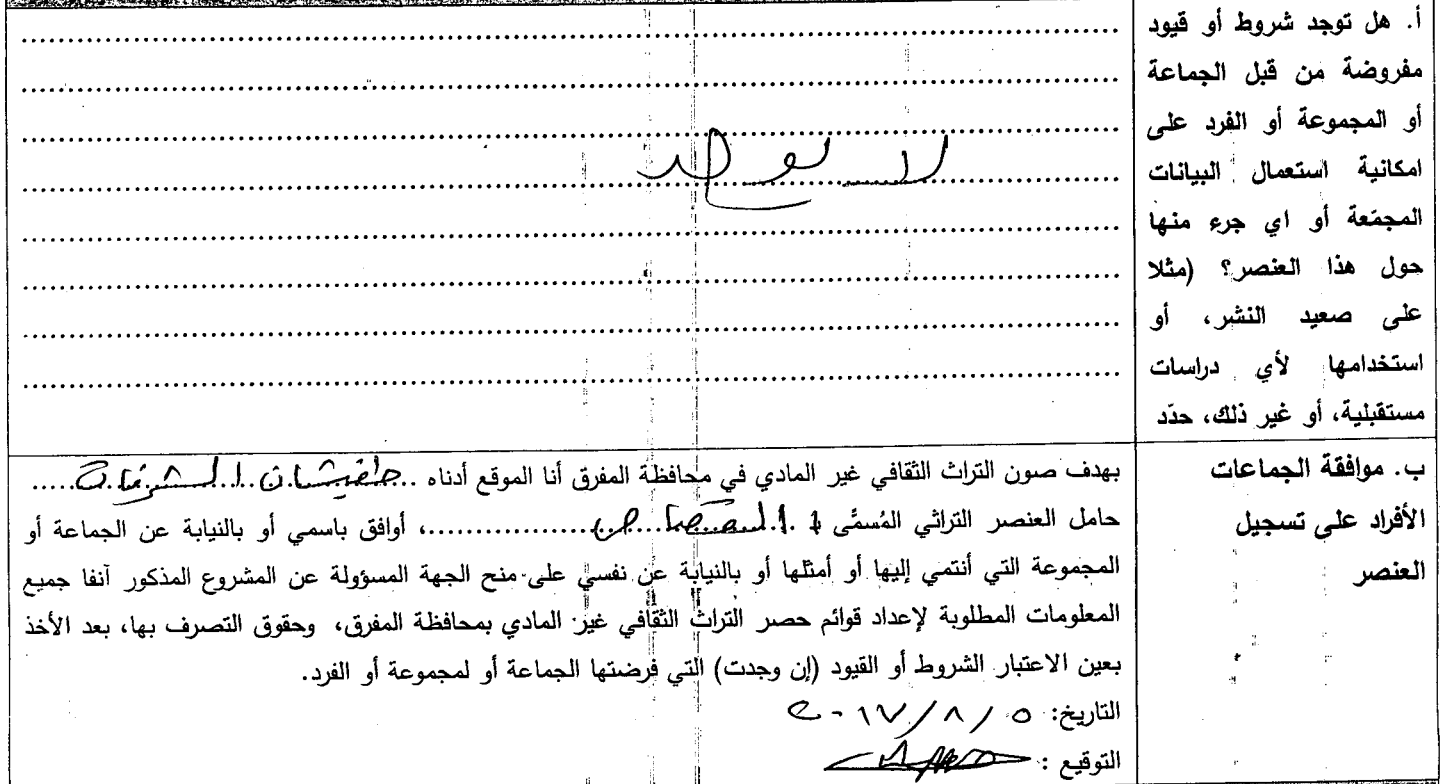 أ. هل توجد شروط أو قيود
مفروضة من قبل الجماعة
أو المجموعة أو الفرد على
امكانية استعمال البيانات
المجمّعة أو اي جرء منها
حول هذا العنصر؟ (مثلا
على صعيد النشر، أو
استخدامها لأي دراسات
مستقبلية، أو غير ذلك، حدّد
لا يوجد
ب. موافقة الجماعات
الأفراد على تسجيل
العنصر
بهدف صون التراث الثقافي غير المادي في محافظة المفرق أنا الموقع أدناه
حامل العنصر التراثي المُسمَّى ، أوافق باسمي أو بالنيابة عن الجماعة أو
المجموعة التي أنتمي إليها أو أمثلها أو بالنيابة عن نفسي على منح الجهة المسؤولة عن المشروع المذكور آنفا جميع
المعلومات المطلوبة لإعداد قوائم حصر التراث الثقافي غير المادي بمحافظة المفرق، وحقوق التصرف بها، بعد الأخذ
بعين الاعتبار الشروط أو القيود (إن وجدت) التي فرضتها الجماعة أو لمجموعة أو الفرد.
التاريخ: ٥ / ٨ / ٢٠١٧
التوقيع :